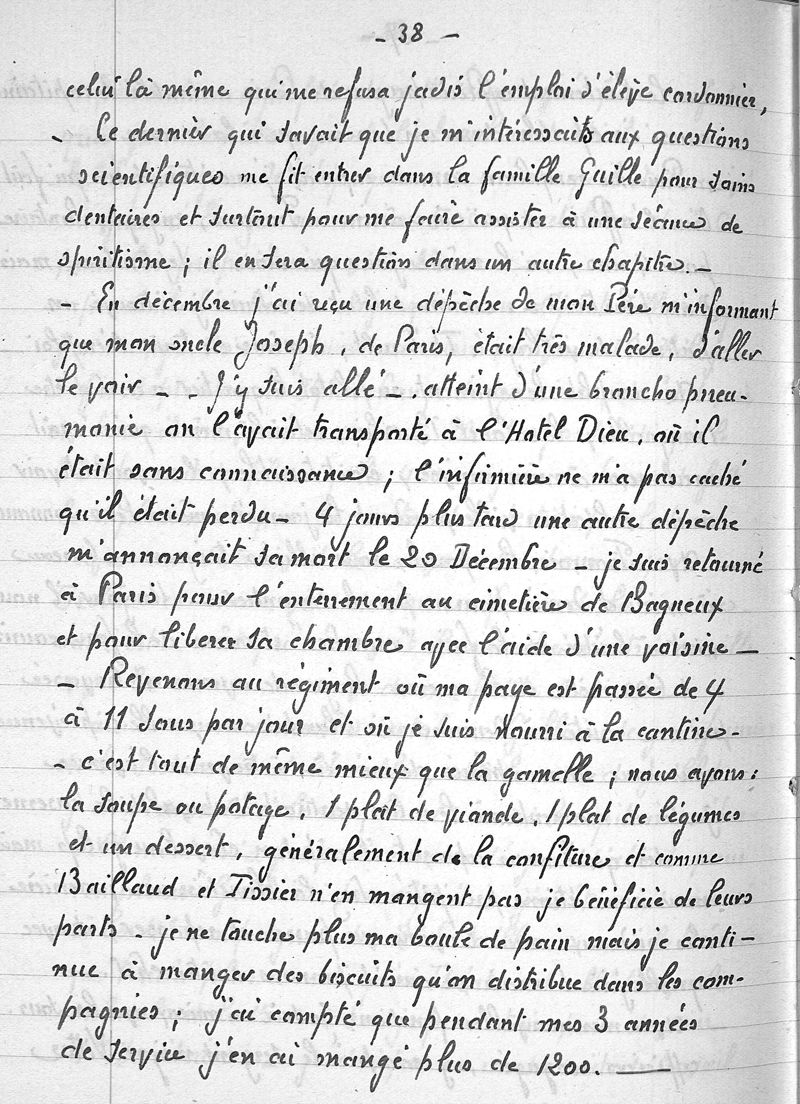 - 38 -
celui là même qui me refusa jadis l'emploi d'élève cordonnier,
- Ce dernier qui savait que je m'intéressaits aux questions
scientifiques me fit entrer dans la famille Guille pour soins
dentaires et surtout pour me faire assister à une séance de
spiritisme ; il en sera question dans un autre chapitre. -
- En décembre j'ai reçu une dépêche de mon Père m'informant
que mon oncle Joseph, de Paris, était très malade, d'aller
le voir - - J'y suis allé -. atteint d'une broncho pneu-
monie on l'avait transporté à l'Hotel Dieu, où il
était sans connaissance ; l'infirmière ne m'a pas caché
qu'il était perdu - 4 jours plus tard une autre dépèche
m'annonçait sa mort le 20 Décembre - je suis retourné
à Paris pour l'enterrement au cimetière de Bagneux
et pour liberer sa chambre avec l'aide d'une voisine -
- Revenons au régiment où ma paye est passée de 4
à 11 sous par jour et où je suis nourri à la cantine -
- c'est tout de même mieux que la gamelle ; nous avons :
la soupe ou potage, 1 plat de viande, 1 plat de légumes
et un dessert, généralement de la confiture et comme
Baillaud et Tissier n'en mangent pas je bénéficie de leurs
parts - je ne touche plus ma boule de pain mais je conti-
nue à manger des biscuits qu'on distribue dans les com-
pagnies ; j'ai compté que pendant mes 3 années
de service j'en ai mangé plus de 1200. -